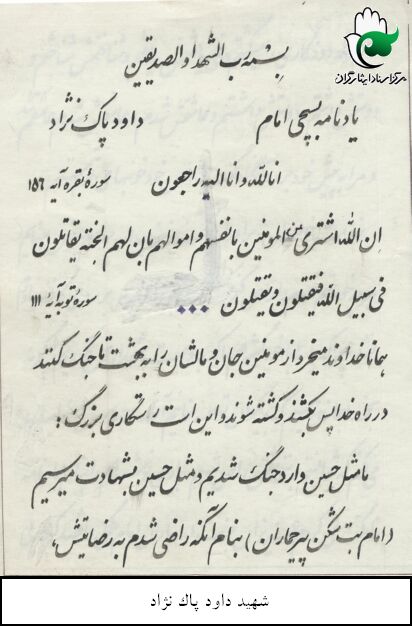 مرکز اسناد ایثارگران
بسمه رب الشهدا و الصدیقین
یادنامه بسیجی امام داود پاک نژاد
انا لله و انا الیه راجعون سورهٔ بقره آیه ۱۵۶
ان الله اشتری من المومنین بانفسهم و اموالهم بان لهم الجنة یقاتلون
فی سبیل الله فیقتلون و یقتلون ... سورهٔ توبه آیهٔ ۱۱۱
همانا خداوند میخرد از مومنین جان و مالشان را به بهشت تا جنگ کنند
در راه خدا پس بکشند و کشته شوند و این است رستگاری بزرگ :
ما مثل حسین وارد جنگ شدیم و مثل حسین بشهادت میرسیم
(امام بت شکن پیر جماران) بنام آنکه راضی شدم به رضایتش ،
شهید داود پاك نژاد